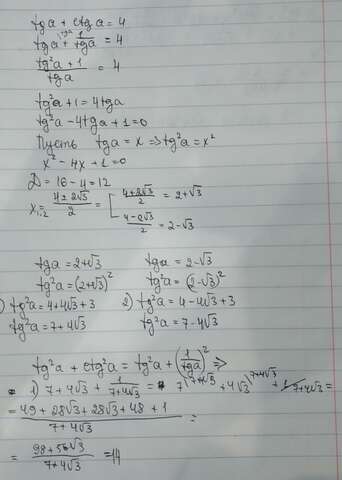 tga + ctga = 4
tga + 1/tga = 4
(tg²a + 1)/tga = 4
tg²a + 1 = 4tga
tg²a - 4tga + 1 = 0
Пусть tga = x => tg²a = x²
x² - 4x + 1 = 0
D = 16 - 4 = 12
x₁,₂ = (4 ± 2√3)/2 = [ (4+2√3)/2 = 2+√3
(4-2√3)/2 = 2-√3
tga = 2+√3 tga = 2-√3
tg²a = (2+√3)² tg²a = (2-√3)²
1) tg²a = 4+4√3+3 2) tg²a = 4-4√3+3
tg²a = 7+4√3 tg²a = 7-4√3
tg²a + ctg²a = tg²a + (1/tga)² =>
1) 7+4√3 + 1/(7+4√3) = 7^(7+4√3) + 4√3^(7+4√3) + 1/(7+4√3) =
= (49 + 28√3 + 28√3 + 48 + 1)/(7+4√3) =
= (98 + 56√3)/(7+4√3) = 14